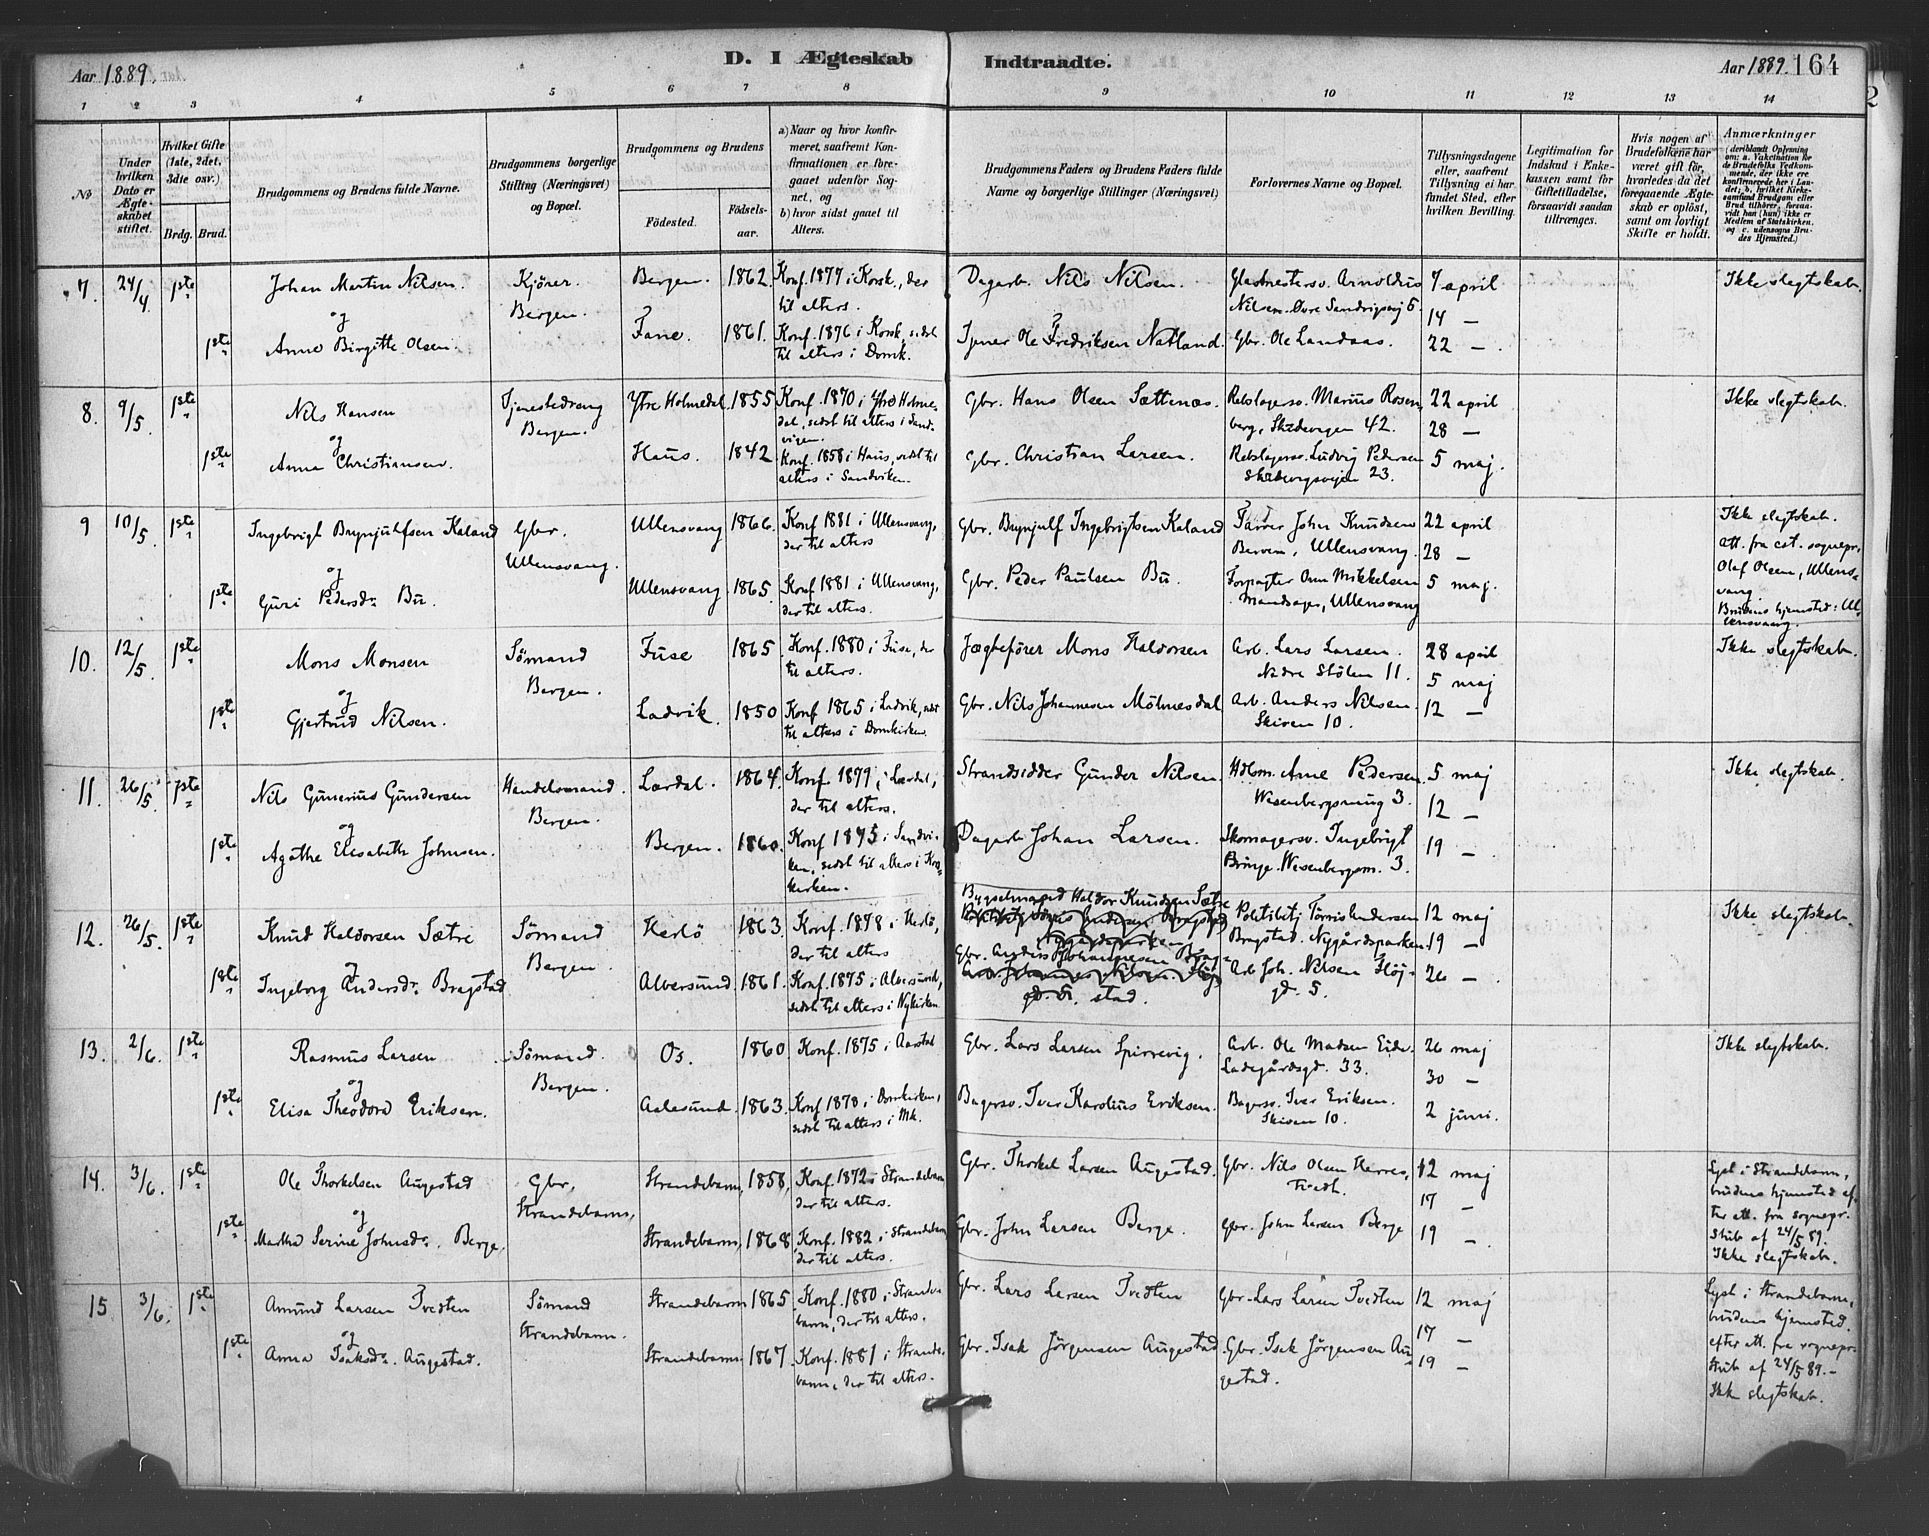 Aar 1889.
D. I Ægteskab Indtraadte.
Aar 1889. 164
1 2 3 4 5 6 7 8 9 10 11 12 13 14
No
Under hvilken Dato er Ægteskabet stiftet.
Hvilket Gifte (1ste, 2det, 3die osv.)
Brdg. Brud.
Brudgommens og Brudens fulde Navne.
Brudgommens borgerlige Stilling (Næringsvei) og Bopæl.
Brudgommens og Brudens
Fødested.
Fødselsaar.
a) Naar og hvor konfirmeret, saafremt Konfirmationen er foregaaet udenfor Sognet, og
b) hvor sidst gaaet til Alters.
Brudgommens Faders og Brudens Faders fulde Navne og borgerlige Stillinger (Næringsvei)
Forlovernes Navne og Bopæl.
Tillysningsdagene eller, saafremt Tillysning ei har fundet Sted, efter hvilken Bevilling.
Legitimation for Indskud i Enkekassen samt for Giftetilladelse, forsaavidt saadan tiltrænges.
Hvis nogen af Brudefolkene har været gift før, hvorledes da det foregaaende Ægteskab er opløst, samt om lovligt Skifte er holdt.
Anmærkninger (deriblandt Oplysning om: a. Vakcination for de Brudefolks Vedkommende, der ikke ere konfirmerede her i Landet; b. hvilket Kirkesamfund Brudgom eller Brud tilhører, forsaavidt han (hun) ikke er Medlem af Statskirken, og c. udensogns Brudes Hjemsted.)
7. 24/4 1ste Johan Martin Nilsen. Kjører. Bergen. Bergen. 1862. Konf. 1877 i Korsk., der til alters. Dagarb. Nils Nilsen. Glasmestersv. Arnoldus Nilsen. Øvre Sandvigsvej 5. 7 april
14 —
og
1ste Anne Birgitte Olsen. Fane. 1861. Konf. 1876 i Korsk, sidst til alters i Domk. Ole Fredriksen Natland. Gbr. Ole Landaas. 22 —
Ikke slegtskab.
8. 9/5. 1ste Nils Hansen Tjenestedreng Bergen. Ytre Holmedal. 1855 Konf. 1870 i Ytre Holmedal, sidst til alters i Sandvigen. Gbr. Hans Olsen Sættenæs. Rebslagersv. Marius Rosenberg, Skudevigen 42. 22 april
28 —
og
1ste Anna Christiansen. Haus. 1842 Konf. 1858 i Haus, sidst til alters i Sandviken. Gbr. Christian Larsen. Rebslagersv. Ludvig Pedersen 23. 5 maj.
Ikke slegtskab.
9 10/5. 1ste Ingebrigt Brynjulfsen Kaland Gbr. Ullensvang. Ullensvang 1866. Konf 1881 i Ullensvang, der til alters Gbr. Brynjulf Ingebrigtsen Kaland John Knudsen Berven, Ullensvang. 22 april
28 —
og
1ste Guri Pedersdr. Bu. Ullensvang. 1865. Konf. 1881 i Ullensvang, der til alters. Gbr. Peder Paulsen Bu. Forpagter Mikkelsen Ullensvang 5 maj.
Ikke slegtskab. att. fra cst. sognepr. Olaf Olsen, Ullensvang. Brudens hjemsted: Ullensvang.
10. 12/5. 1ste Mons Monsen Sömand Bergen. Fuse 1865 Konf. 1880 i Fuse, der til alters. Jægtefører Mons Haldorsen Arb. Lars Larsen. Nedre Stölen 11. 28 april
5 maj
og
1ste Gjertrud Nilsen. Ladvik. 1850 Konf. 1865 i Ladvik, sidst til alters i Domkirken. Gbr. Nils Johannesen Mölmesdal Arb. Anders Nilsen. Skiven 10. 12 —
Ikke slegtskab.
11. 26/5. 1ste Nils Gunerius Gundersen Handelsmand. Bergen. Lærdal. 1864. Konf. 1879 i Lærdal, der til alters. Strandsidder Gunder Nilsen. Hdlsm. Arne Pedersen. Wesenbergsmug 3. 5 maj
12 —
og
1ste Agathe Elisabeth Johnsen. Bergen. 1860. Konf 1875 i Sandviken, sidst til alters i Korskirken. Dagarb. Johan Larsen. Skomagersv. Ingebrigt Bringe. Wesenbergsm. 3. 19 —
Ikke slegtskab.
12. 26/5. 1ste Knud Haldorsen Sætre Sömand Bergen. Herlö 1863. Konf. 1878 i Herlö, der til alters Haldor Knudsen Sætre Politibetj Tørris Andersen Bragstad. Nygårdsparken. 12 maj
19 —
og
1ste Ingeborg Andersdr. Bragstad Alversund. 1861. Konf. 1875 i Alversund, sidst til alters i Nykirken Gbr. Anders Johannesen Bragstad. Arb Joh. Nilsen gd. 5. 26 —
Ikke slegtskab.
13. 2/6. 1ste Rasmus Larsen Sömand. Bergen. Os. 1860 Konf. 1875 i Aarstad Gbr. Lars Larsen Spirrevig. Arb. Ole Madsen Eide. Ladegårdsgd. 33. 26 maj
30 —
og
1ste Elisa Theodore Eriksen. Aalesund. 1863. Konf 1878 i Domkirken, sidst til alters i Mk. Bagersv. Iver Karolius Eriksen. Bagersv. Iver Eriksen. Skiven 10. 2 juni.
Ikke slegtskab.
14. 3/6. 1ste Ole Thorkelsen Augestad Gbr, Strandebarm, Strandebarm, 1858, Konf. 1872 i Strandebarm der til alters. Gbr. Thorkel Larsen Augestad. Gbr. Nils Olsen 12 maj
17 —
og
1ste Martha Serine Johnsdr. Berge. Strandebarm, 1868 Konf. 1882 i Strandebarm der til alters. Gbr. John Larsen Berge. Gbr. John Larsen Berge 19 —.
Lyst i Strandebarm, brudens hjemsted efter att. fra sognepr. Stub af 24/5 89. Ikke slegtskab.
15 3/6. 1ste Amund Larsen Tvedten Sömand Strandebarm. Strandebarm 1865 Konf. 1880 i Strandebarm, der til alters. Gbr. Lars Larsen Tvedten Gbr. Lars Larsen Tvedten 12 maj
17 —
og
1ste Anna Isaksdr. Augestad. Strandebarm 1867. Konf. 1881 i Strandebarm, der til alters. Gbr. Isak Jörgensen Augestad. Gbr. Isak Jörgensen Augestad. 19 —
Lyst i Strandebarm, brudens hjemsted. efter att. fra sognepr. Stub af 24/5 89. — Ikke slegtskab.